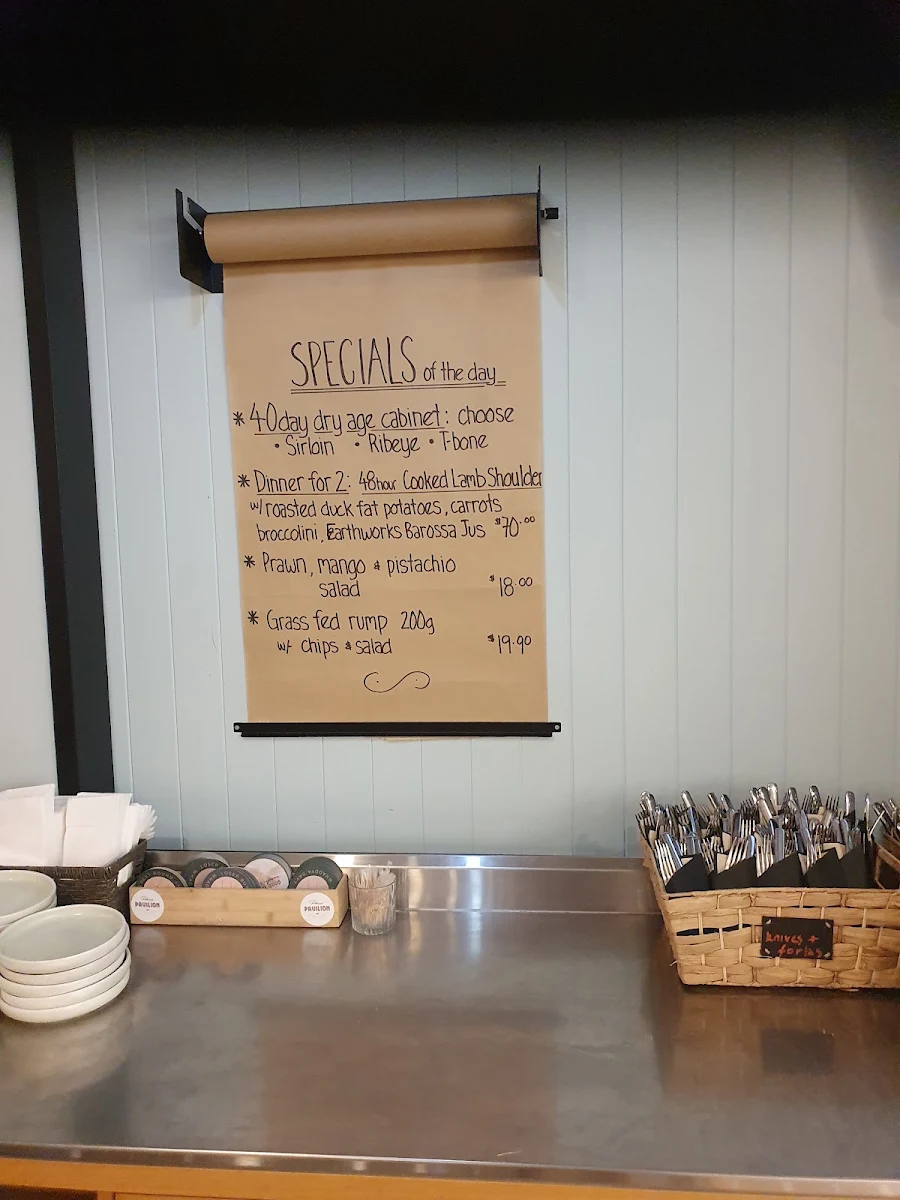 SPECIALS of the day
* 40 day dry age cabinet: choose
• Sirloin • Ribeye • T-bone
* Dinner for 2: 48hour Cooked Lamb Shoulder
w/ roasted duck fat potatoes, carrots
broccolini, Earthworks Barossa Jus $70.00
* Prawn, mango & pistachio
salad $18.00
* Grass fed rump 200g
w/ chips & salad $19.90
PAVILION
PAVILION
knives +
forks